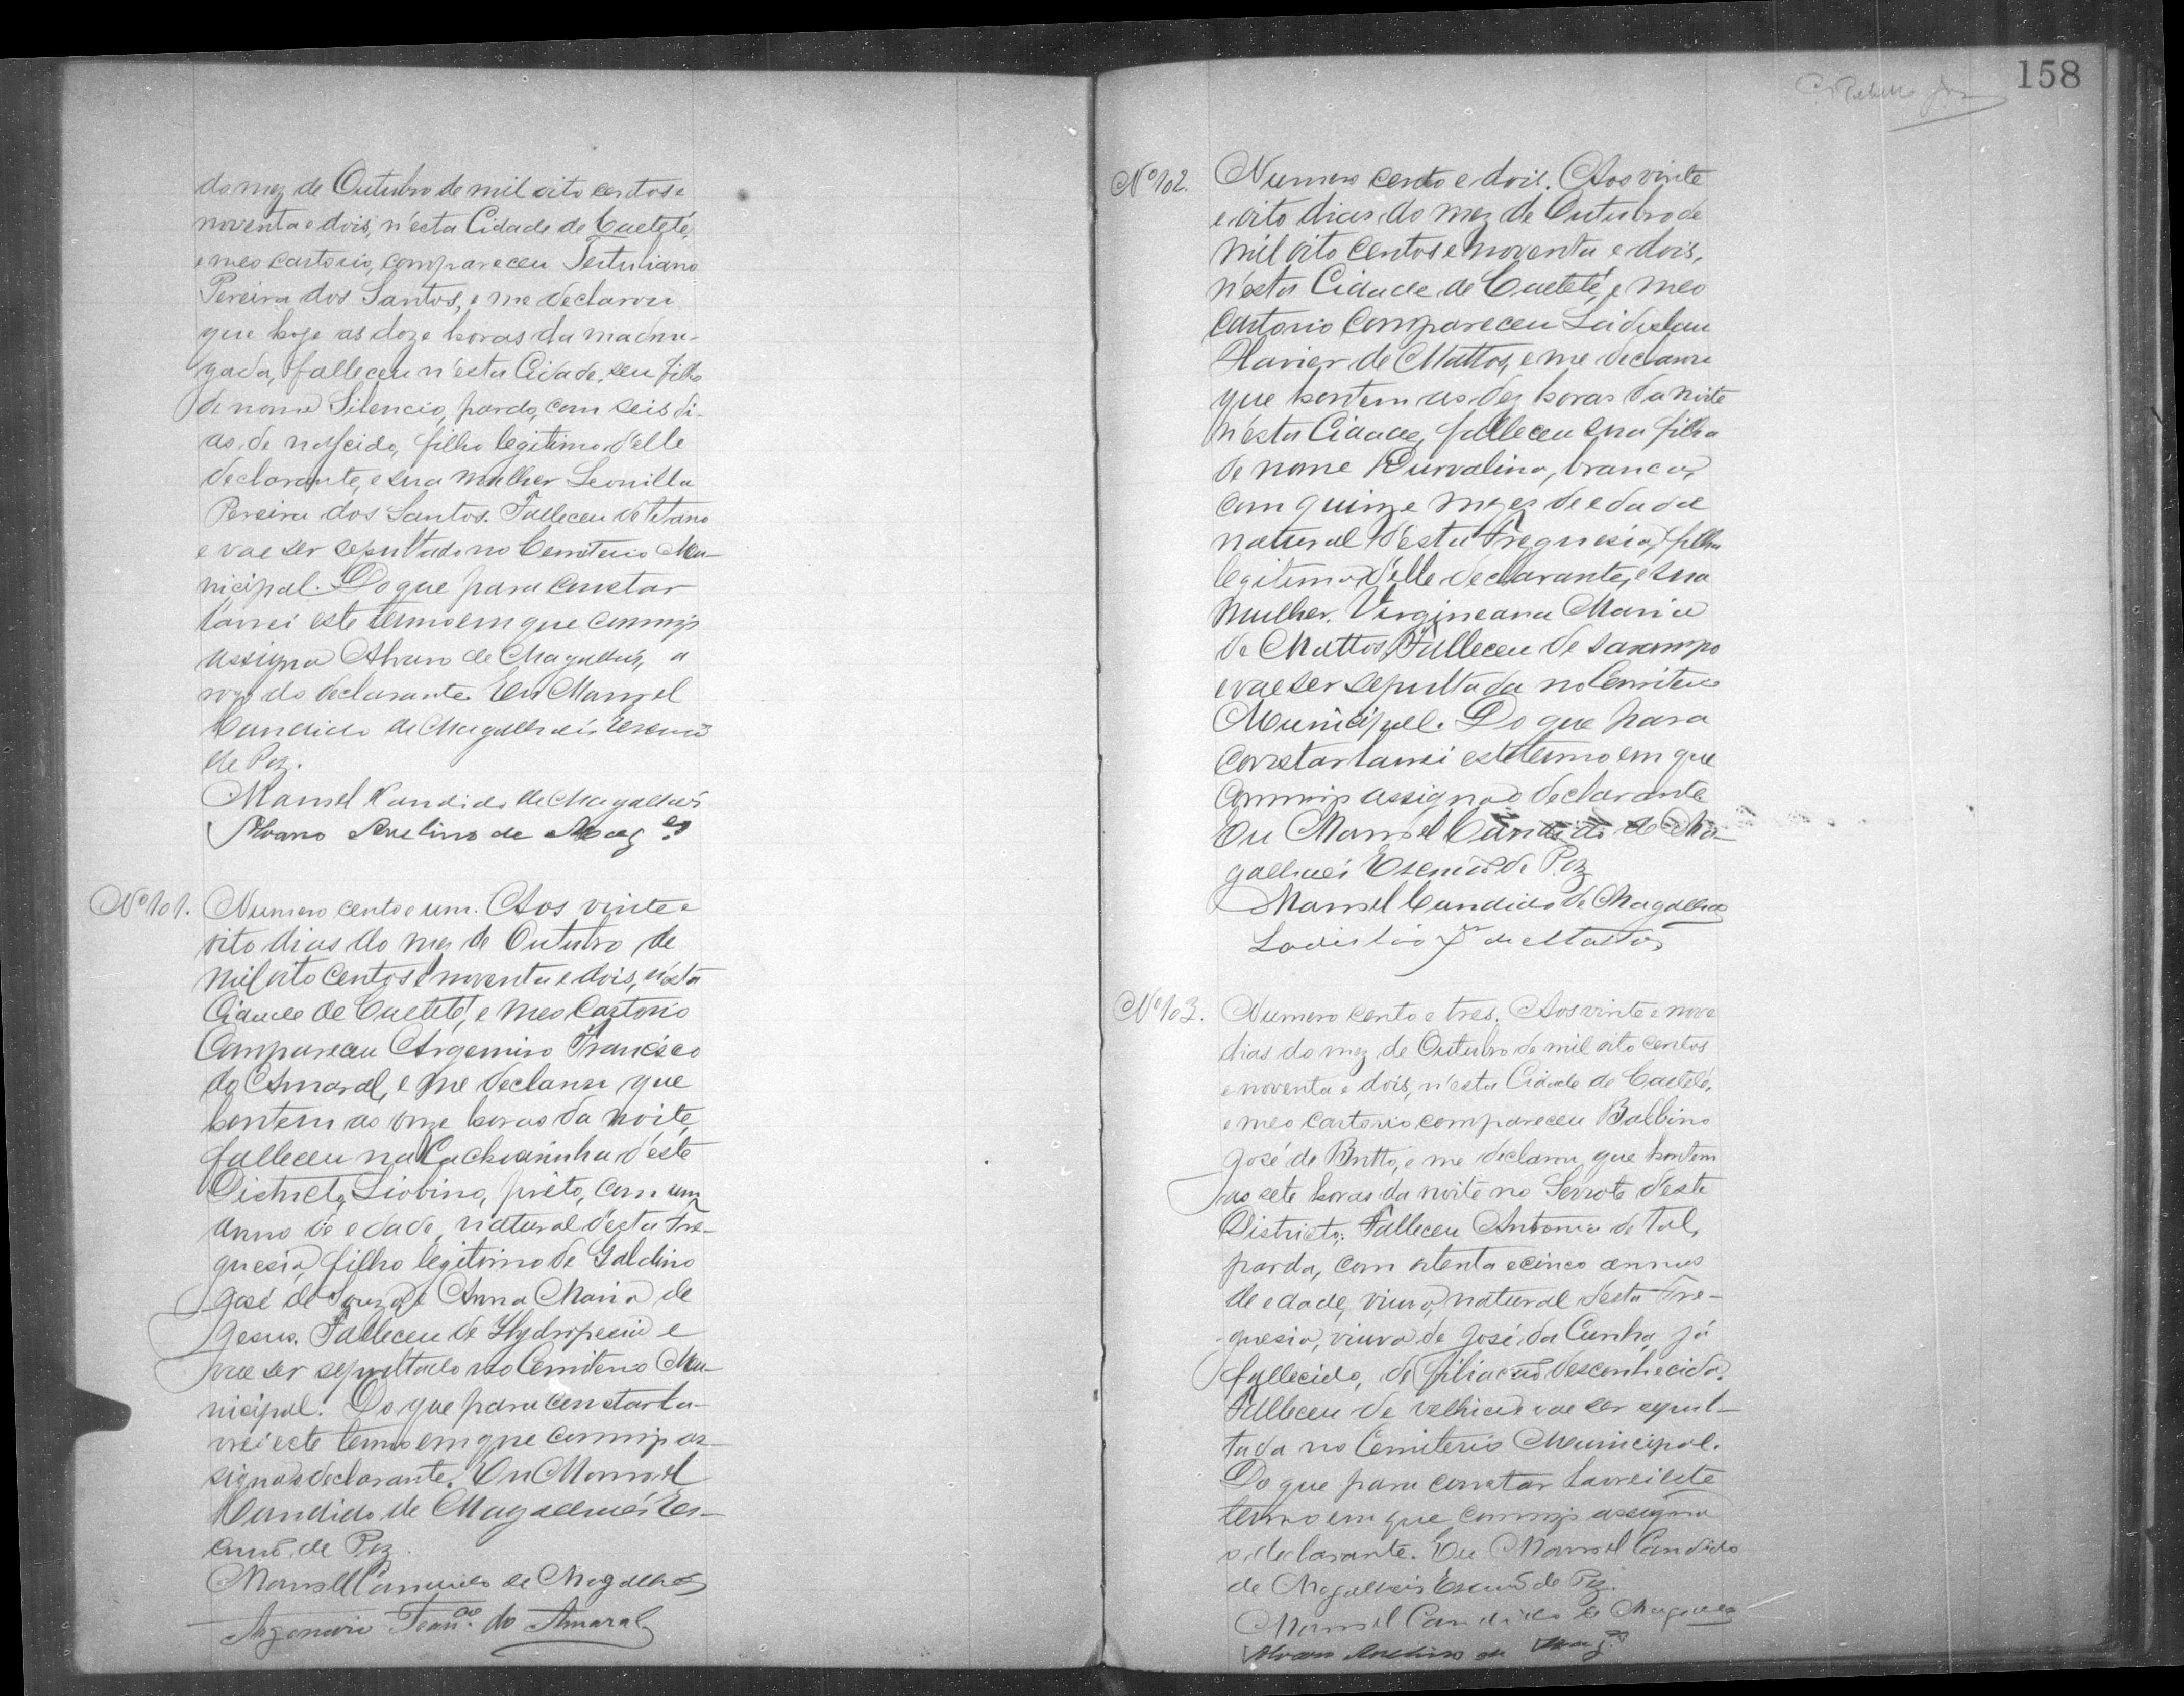 do mez de Outubro de mil oito centos e
noventa e dois, n'esta Cidade de Caeteté,
e meo cartorio, compareceu Tertuliano
Pereira dos Santos, e me declarou
que hoje as doze horas da madru-
gada, falleceu n'esta Cidade, seu filho
de nome Silencio, pardo, com seis di-
as de nascido, filho legitimo d'elle
declarante, e sua mulher Leonilla
Pereira dos Santos. Falleceu de tetano
e vae ser sepultado no Cemiterio Mu-
nicipal. Do que para constar
lavrei este termo em que commigo
assigna Alvaro de Magalhães, a
rogo do declarante. Eu Manoel
Candido de Magalhães Escrivão
de Paz.
Manoel Candido de Magalhães
Alvaro Avelino de Mag.es
Nº 101. Numero cento e um. Aos vinte e
oito dias do mez de Outubro de
mil oito centos e noventa e dois, n'esta
Cidade de Caeteté, e meo Cartorio
Compareceu Argemiro Francisco
do Amaral, e me declarou que
hontem as onze horas da noite
falleceu na Cachoeirinha d'este
Districto, Liobino, preto, com um
anno de edade, natural desta Fre-
guesia, filho legitimo de Galdino
José de Souza e Anna Maria de
Jesus. Falleceu de Hydropesia e
vae ser sepultado no Cemiterio Mu-
nicipal. Do que para constar la-
vrei este termo em que commigo as-
signa o declarante. Eu Manoel
Candido de Magalhães Es-
crivão de Paz.
Manoel Candido de Magalhães
Argemiro Fran.co do Amaral
158
Nº 102. Numero cento e dois. Aos vinte
e oito dias do mez de Outubro de
mil oito centos e noventa e dois,
n'esta Cidade de Caeteté, e meo
Cartorio Compareceu Ladislau
Xavier de Mattos, e me declarou
que hontem as dez horas da noite
n'esta Cidade, falleceu sua filha
de nome Durvalina, branca,
com quinze mezes de edade
natural d'esta Freguesia, filha
legitima d'elle declarante, e sua
mulher Virgineana Maria
de Mattos. Falleceu de sarampo
e vae ser sepultada no Cemiterio
Municipal. Do que para
constar lavrei este termo em que
commigo assigna o declarante
Eu Manoel Candido de Ma-
galhães Escrivão de Paz
Manoel Candido de Magalhães
Ladisláo X.er de Mattos
Nº 103. Numero cento e tres. Aos vinte e nove
dias do mez de Outubro de mil oito centos
e noventa e dois, n'esta Cidade de Caeteté,
e meo cartorio compareceu Balbino
José de Britto, e me declarou que hontem
as sete horas da noite no Serrote d'este
Districto, Falleceu Antonia de Tal,
parda, com oitenta e cinco annos
de edade, viuva, natural desta Fre-
guesia, viuva de José da Cunha, já
fallecido, de filiação desconhecida.
Falleceu de velhice e vae ser sepul-
tada no Cemiterio Municipal.
Do que para constar lavrei este
termo em que commigo assigna
o declarante. Eu Manoel Candido
de Magalhães Escrivão de Paz.
Manoel Candido de Magalhães
Alvaro Avelino de Mag.es